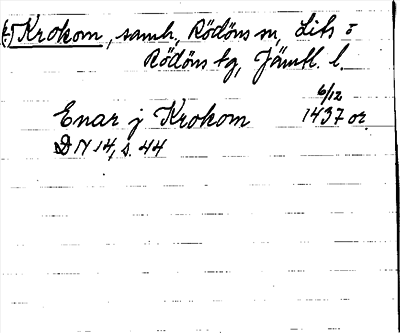 (t.) Krokom, samh., Rödöns sn, Lits o
Rödöns tg, Jämtl. l.
6/12
Enar j Krokom 1437 or.
DN 14, s. 44